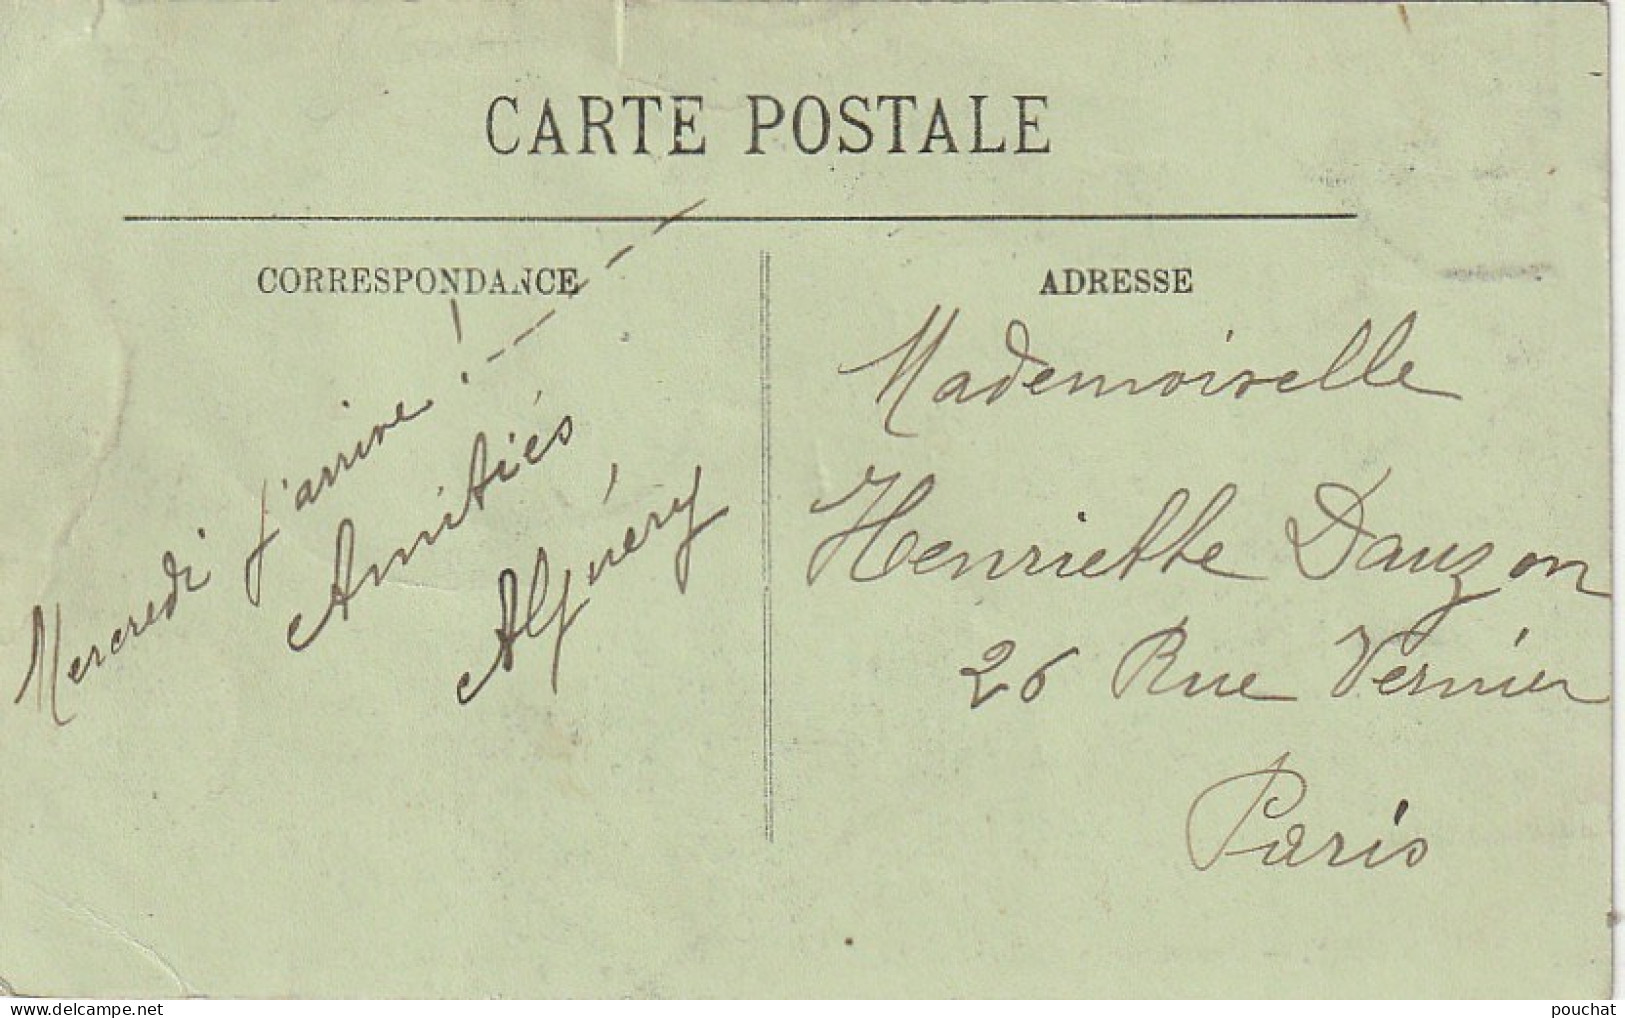 CARTE POSTALE
CORRESPONDANCE
Mercredi j'arrive!
Amitiés
ADRESSE
Mademoiselle
Henriette Dauzon
26 Rue Vernier
Paris
pouchat